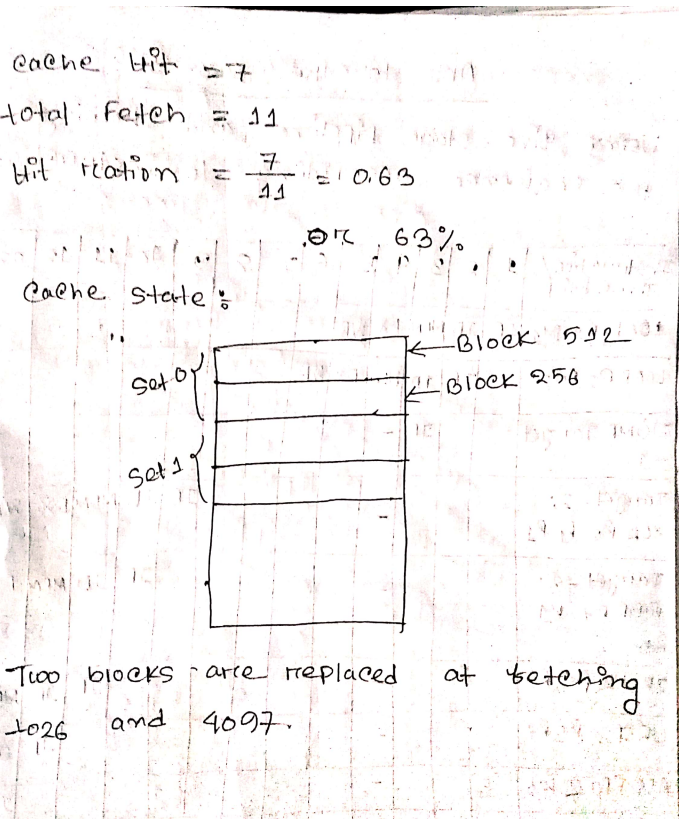 Cache Hit = 7
total Fetch = 11
Hit ration = 7/11 = 0.63
or 63%
Cache state:
Set 0
Block 512
Block 256
Set 1
Two blocks are replaced at fetching
1026 and 4097.